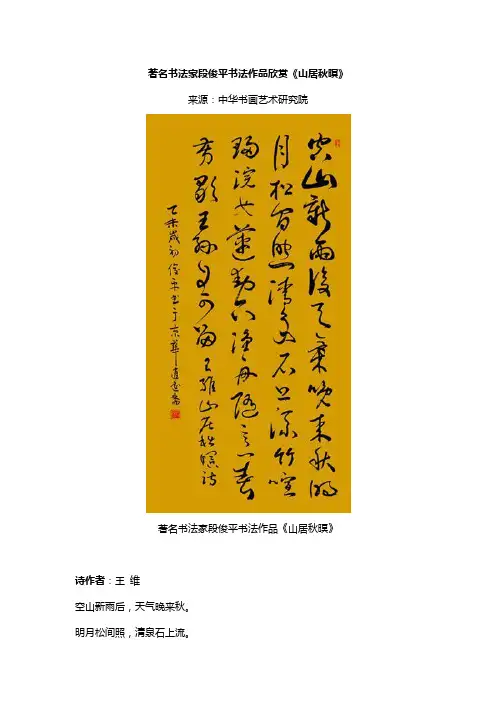 著名书法家段俊平书法作品欣赏《山居秋暝》
来源：中华书画艺术研究院
空山新雨後天氣晚來秋明
月松間照清泉石上流竹喧
歸浣女蓮動下漁舟隨意春
芳歇王孫自可留王維山居秋暝詩
乙未歲初俊平書于京華
著名书法家段俊平书法作品《山居秋暝》
诗作者：王 维
空山新雨后，天气晚来秋。
明月松间照，清泉石上流。